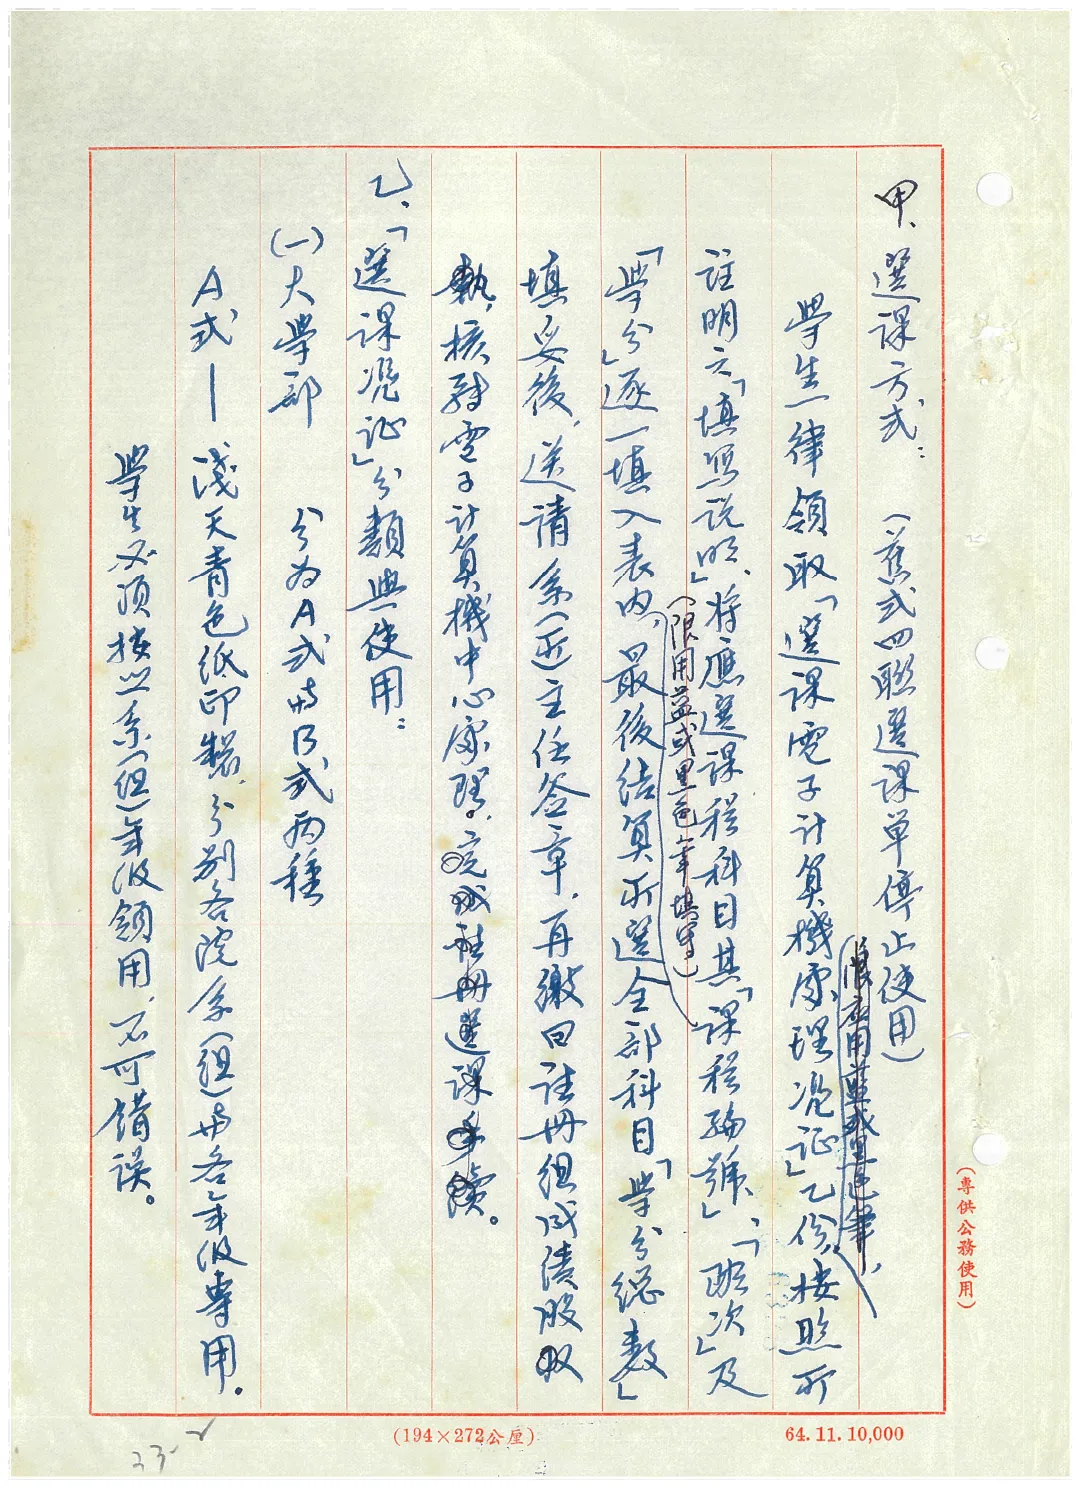 甲、選課方式：（舊式四聯選課單停止使用）
學生一律領取「選課電子計算機處理憑證」乙份，按照所
限用藍或黑色筆，
註明之「填寫說明」、將應選課程科目其「課程編號」、「班次」及
（限用藍或黑色筆填寫）
「學分」逐一填入表內，最後結算所選全部科目「學分總數」
填妥後，送請系（所）主任簽章，再繳回註冊組成績股收
執，核對電子計算機中心處理，完成註冊選課手續。
乙、「選課憑証」分類與使用：
（一）大學部　分為A式與B式兩種
A式—淺天青色紙印製，分別各院系（組）與各年級專用。
學生必須按照系（組）年級領用，不可錯誤。
（專供公務使用）
(194×272公厘)
64. 11. 10,000
23